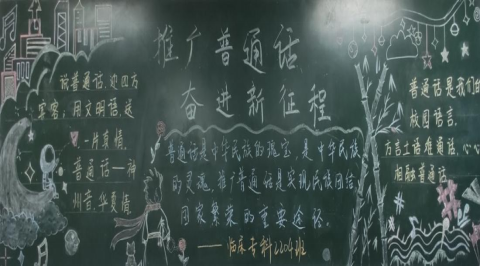 推广普通话
奋进新征程
说普通话,迎四方
宾客,用文明语,送
一片真情
普通话一神
州音,华夏情
普通话是中华民族的瑰宝,是中华民族
的灵魂,推广普通话是实现民族团结
国家繁荣的重要途径
——临床专科2204班
普通话是我们的
校园语言
方言土语难通话,心心
相融普通话